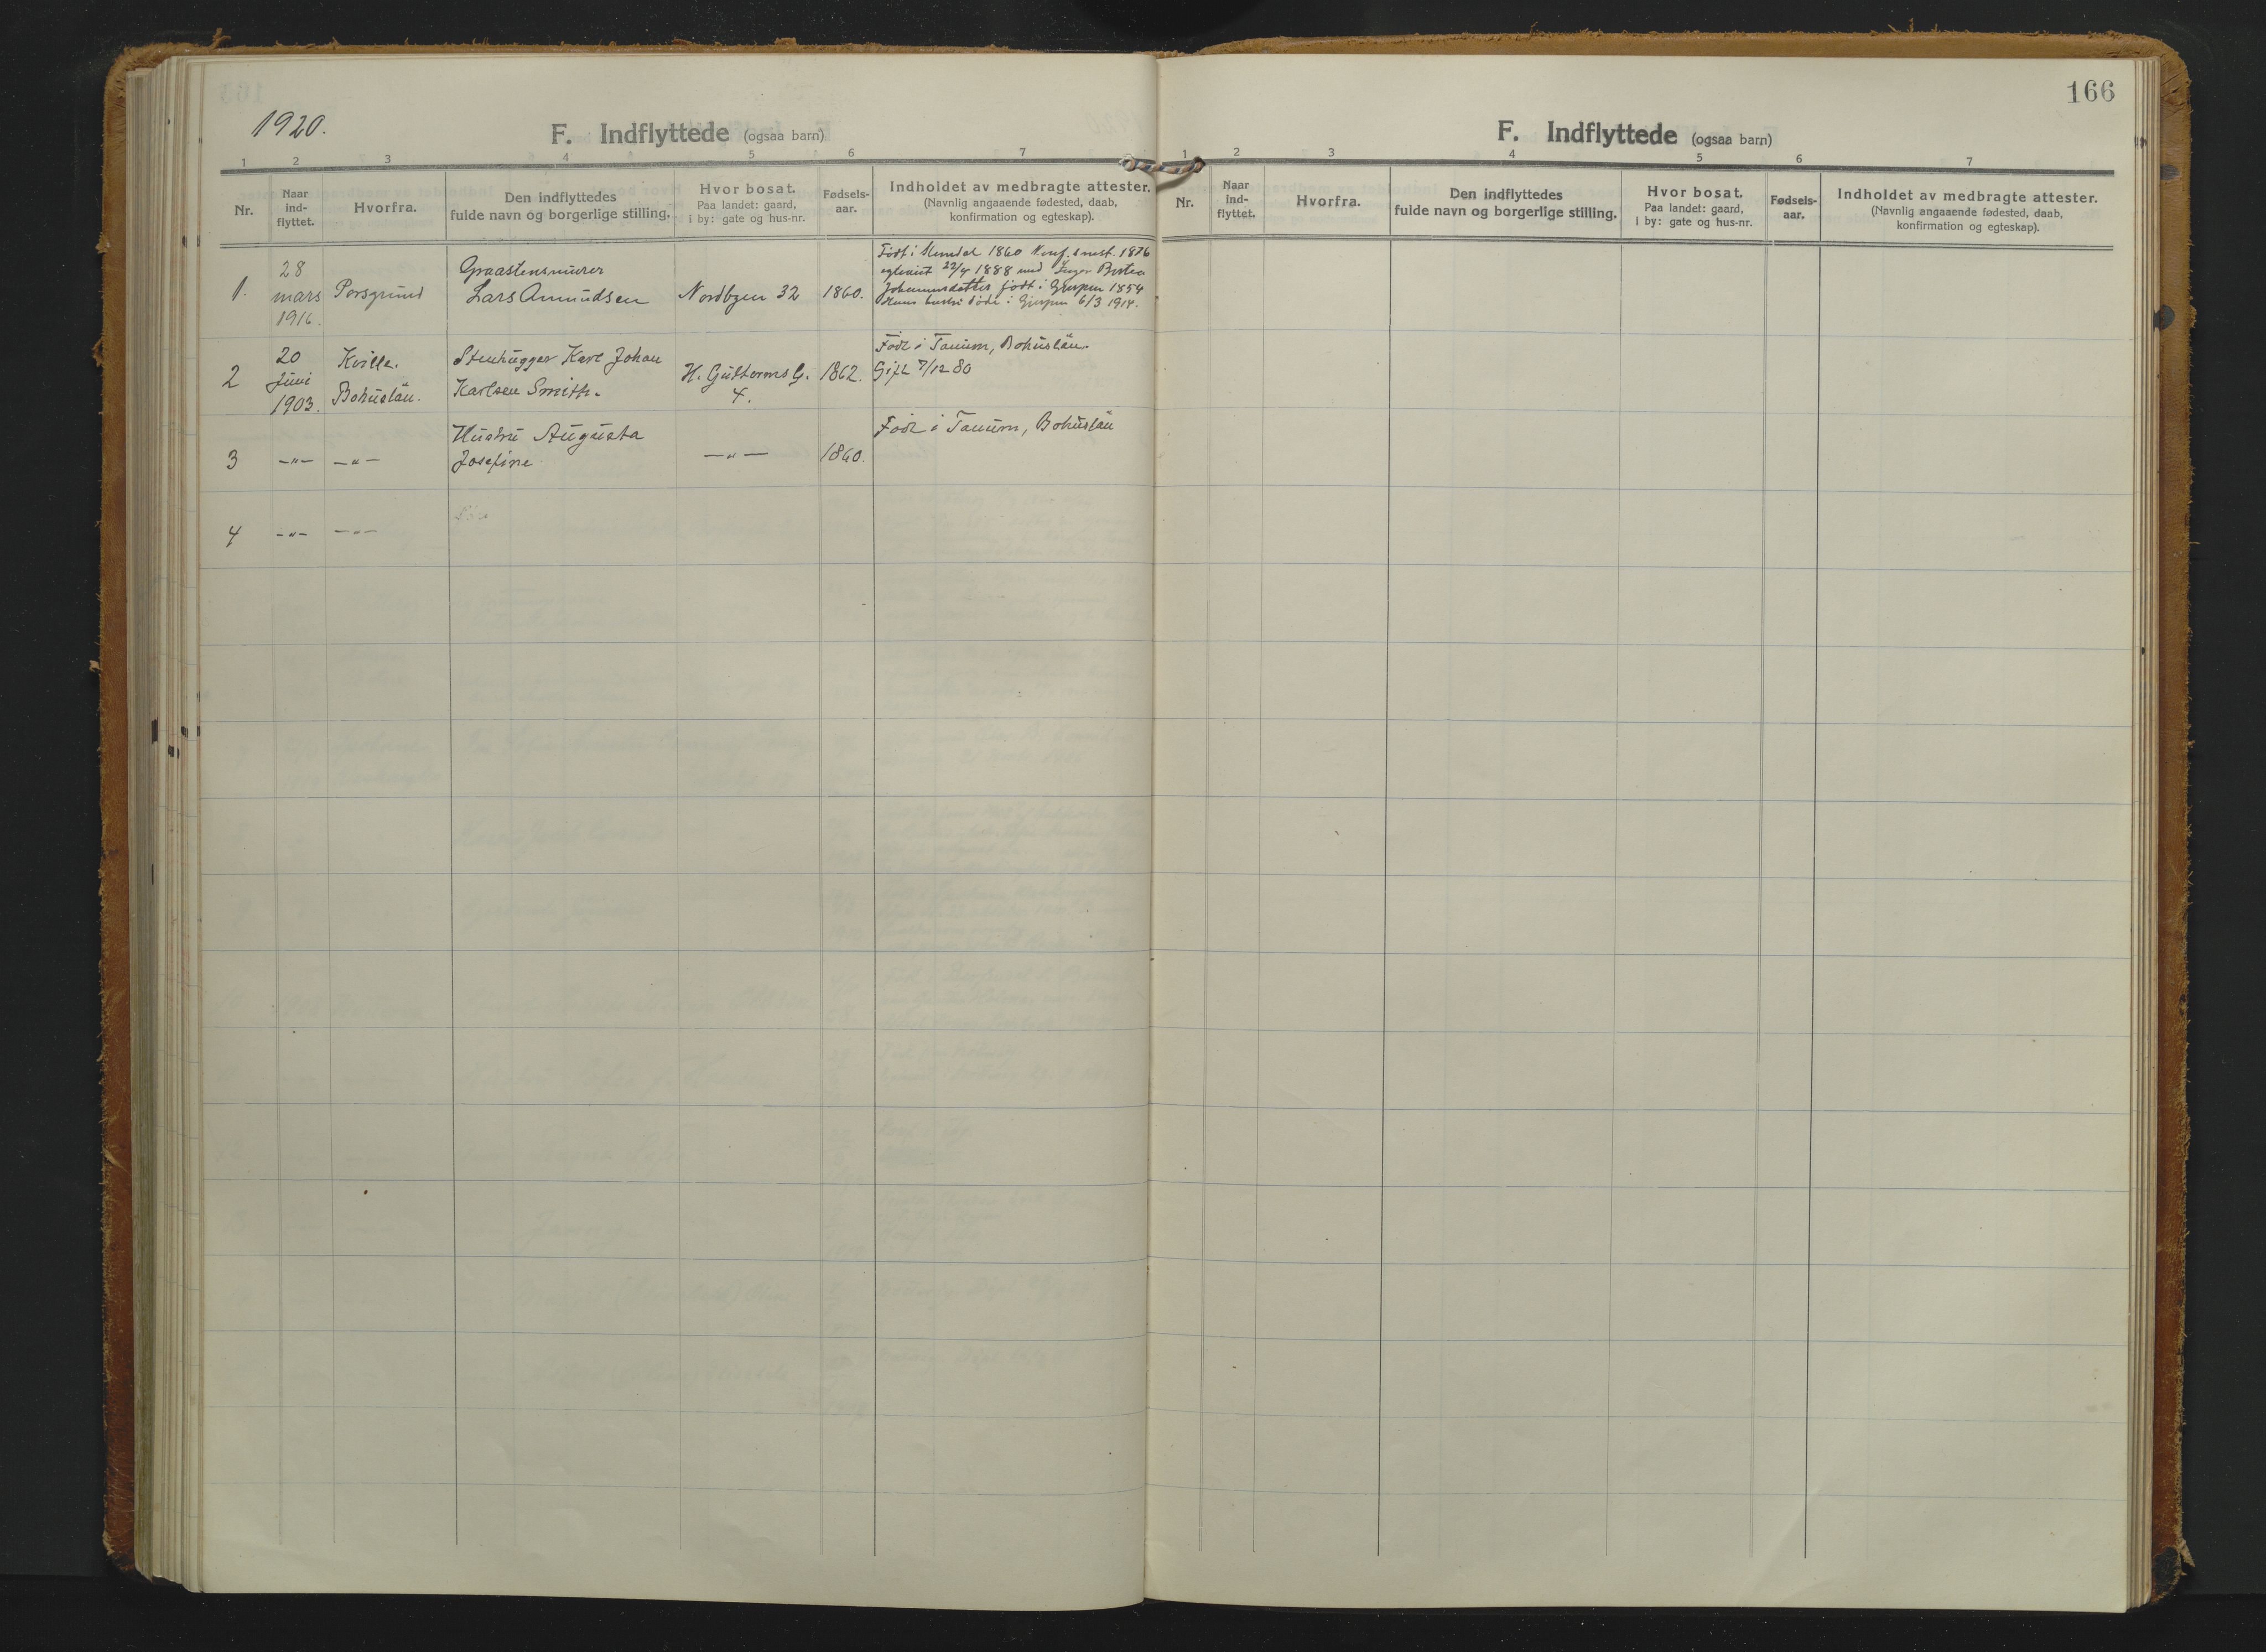 1920.
F. Indflyttede (ogsaa barn)
1 2 3 4 5 6 7
Nr.
Naar ind-flyttet.
Hvorfra.
Den indflyttedes
fulde navn og borgerlige stilling.
Hvor bosat.
Paa landet: gaard,
i by: gate og hus-nr.
Fødsels-
aar.
Indholdet av medbragte attester.
(Navnlig angaaende fødested, daab,
konfirmation og egteskap).
1.
28
mars
1916.
Porsgrund
Graastensmurer
Lars Amundsen
Nordbyen 32
1860.
Født i 1860 Konf. smst. 1876
egteviet 22/4 1888 med Inger
Johannesdatter født i Gjerpen 1854
Hans hustru døde i Gjerpen 6/3 1914.
2
20
Juni
1903.
Kville.
Bohuslän.
Stenhugger Karl Johan
Karlsen Smith.
H. Guttorms G.
4.
1862.
Født i Tanum, Bohuslän.
Gift 7/12 80
3
—"—
—"—
Hustru Augusta
Josefine
—"—
1860.
Født i Tanum, Bohuslän
4
—"—
—"—
166
F. Indflyttede (ogsaa barn)
1 2 3 4 5 6 7
Nr.
Naar
ind-
flyttet.
Hvorfra.
Den indflyttedes
fulde navn og borgerlige stilling.
Hvor bosat.
Paa landet: gaard,
i by: gate og hus-nr.
Fødsels-
aar.
Indholdet av medbragte attester.
(Navnlig angaaende fødested, daab,
konfirmation og egteskap).